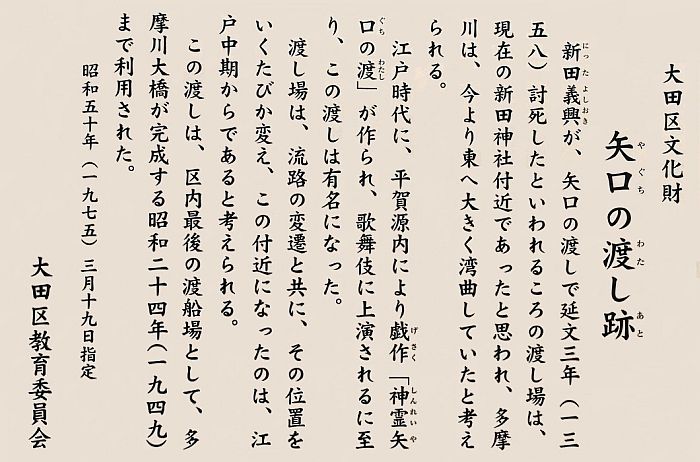 大田区文化財
矢口の渡し跡
やぐち わたし あと
新田義興が、矢口の渡しで延文三年（一三
にったよしおき
五八）討死したといわれるころの渡し場は、
現在の新田神社付近であったと思われ、多摩
川は、今より東へ大きく湾曲していたと考え
られる。
江戸時代に、平賀源内により戯作「神霊矢
げさく しんれいや
口の渡」が作られ、歌舞伎に上演されるに至
ぐち わたし
り、この渡しは有名になった。
渡し場は、流路の変遷と共に、その位置を
いくたびか変え、この付近になったのは、江
戸中期からであると考えられる。
この渡しは、区内最後の渡船場として、多
摩川大橋が完成する昭和二十四年（一九四九）
まで利用された。
昭和五十年（一九七五）三月十九日指定
大田区教育委員会